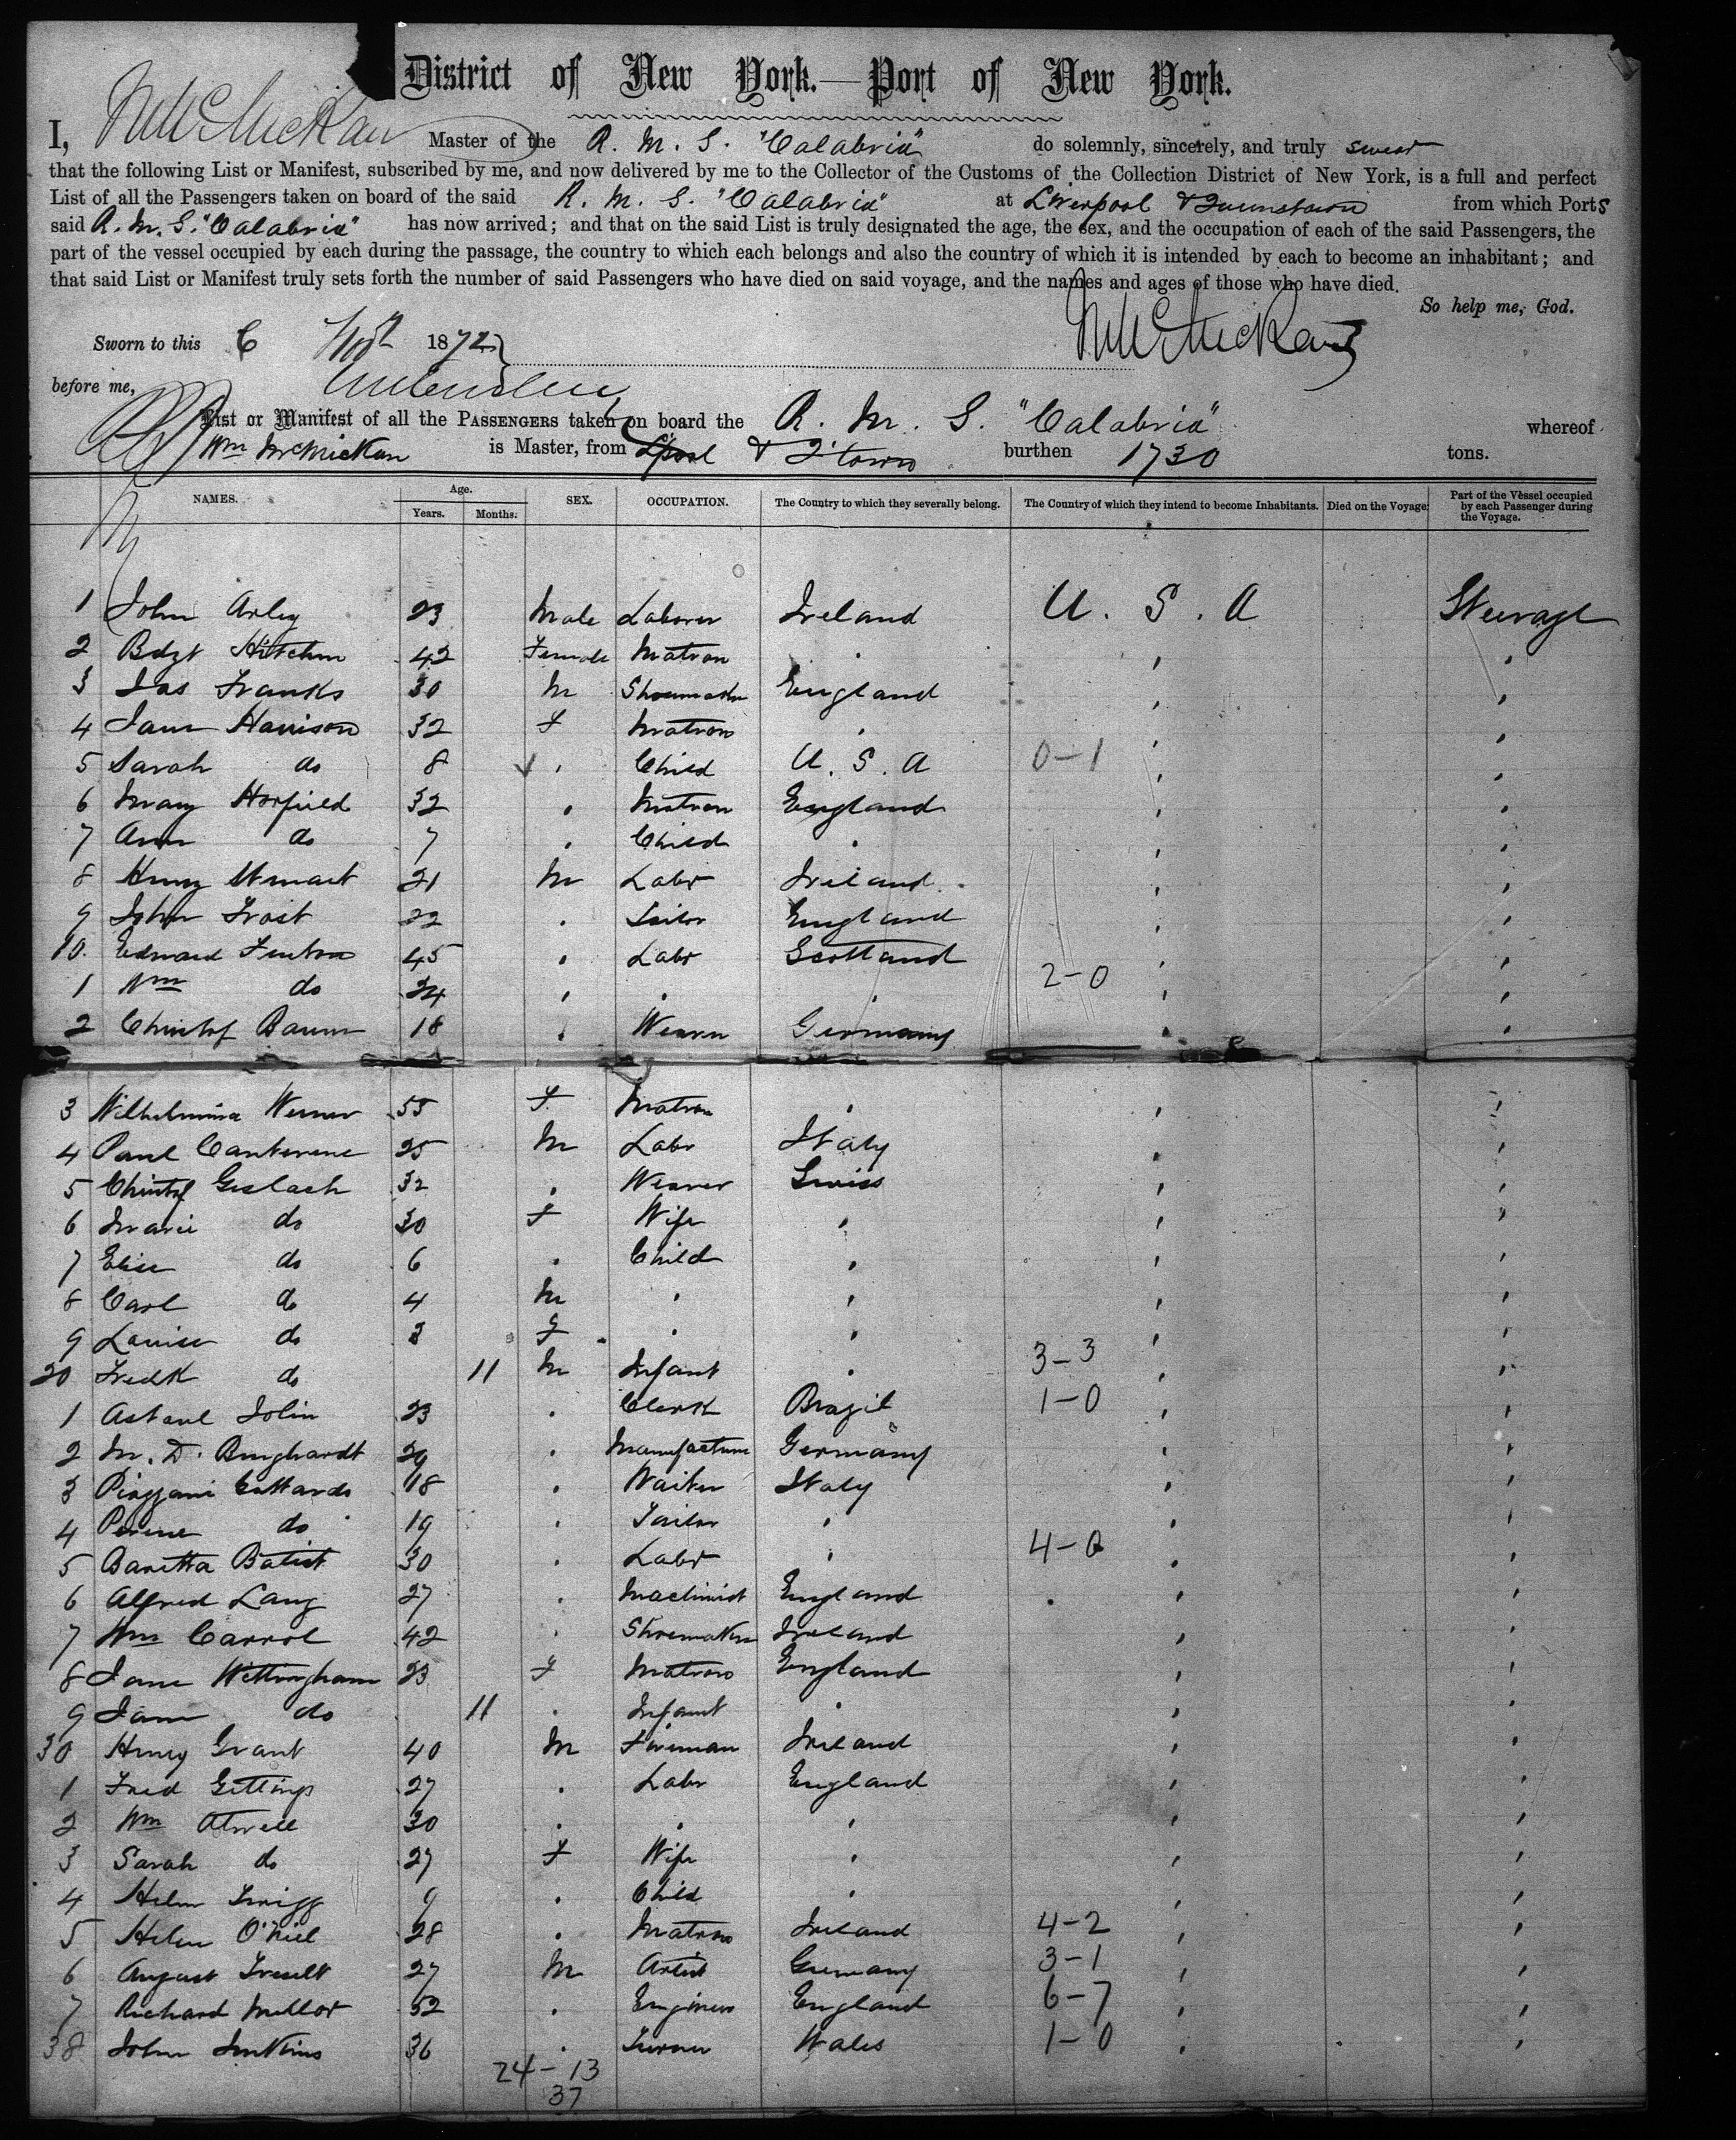 District of New York.—Port of New York.
I, Wm McMickan Master of the R. M. S. "Calabria" do solemnly, sincerely, and truly swear
that the following List or Manifest, subscribed by me, and now delivered by me to the Collector of the Customs of the Collection District of New York, is a full and perfect
List of all the Passengers taken on board of the said R. M. S. "Calabria" at Liverpool & Queenstown from which Ports
said R. M. S. "Calabria" has now arrived; and that on the said List is truly designated the age, the sex, and the occupation of each of the said Passengers, the
part of the vessel occupied by each during the passage, the country to which each belongs and also the country of which it is intended by each to become an inhabitant; and
that said List or Manifest truly sets forth the number of said Passengers who have died on said voyage, and the names and ages of those who have died.
So help me, God.
Sworn to this 6 Novr 1872 Wm McMickan
before me,
List or Manifest of all the PASSENGERS taken on board the R. M. S. "Calabria" whereof
Wm McMickan is Master, from L'pool & Q'town burthen 1730 tons.
NAMES. Age. Years. Months. SEX. OCCUPATION. The Country to which they severally belong. The Country of which they intend to become Inhabitants. Died on the Voyage. Part of the Vessel occupied by each Passenger during the Voyage.
1 John Arley 23 Male Laborer Ireland U. S. A Steerage
2 Bdgt Hitchin 42 Female Matron " " "
3 Jas Franks 30 M Shoemaker England " "
4 Jane Harrison 32 F Matron " " "
5 Sarah do 8 " Child U. S. A 0-1 " "
6 Mary Horfield 32 " Matron England " "
7 Ann do 7 " Child " " "
8 Henry Stewart 21 M Labr Ireland " "
9 John Frost 22 " Tailor England " "
10. Edward Fenton 45 " Labr Scotland " "
1 Wm do 24 " " " 2-0 " "
2 Christof Baum 18 " Weaver Germany " "
3 Wilhelmina Werner 55 F. Matron " " "
4 Paul 25 M Labr Italy " "
5 Christof Geslach 32 " Weaver Swiss " "
6 Marie do 30 F Wife " " "
7 Elise do 6 " Child " " "
8 Carl do 4 M " " " "
9 Louise do 3 F " " " "
20 Fredk do 11 M Infant " 3-3 " "
1 John 23 " Clerk Brazil 1-0 " "
2 M. D. Burghardt 29 " Manufacturer Germany " "
3 Gottardo 18 " Waiter Italy " "
4 do 19 " Tailor " " "
5 Baretta Batist 30 " Labr " 4-0 " "
6 Alfred Lang 27 " Machinist England " "
7 Wm Carrol 42 " Shoemaker Ireland " "
8 Jane Wittingham 23 F Matron England " "
9 Jane do 11 " Infant " " "
30 Henry Grant 40 M Fireman Ireland " "
1 Fred Gittings 27 " Labr England " "
2 Wm Atwell 30 " " " " "
3 Sarah do 27 F Wife " " "
4 Helen Twigg 9 " Child " " "
5 Helen O'Niel 28 " Matron Ireland 4-2 " "
6 August 27 M Artist Germany 3-1 " "
7 Richard Mellor 52 " Engineer England 6-7 " "
38 John Jenkins 36 " Turner Wales 1-0 " "
24-13
37